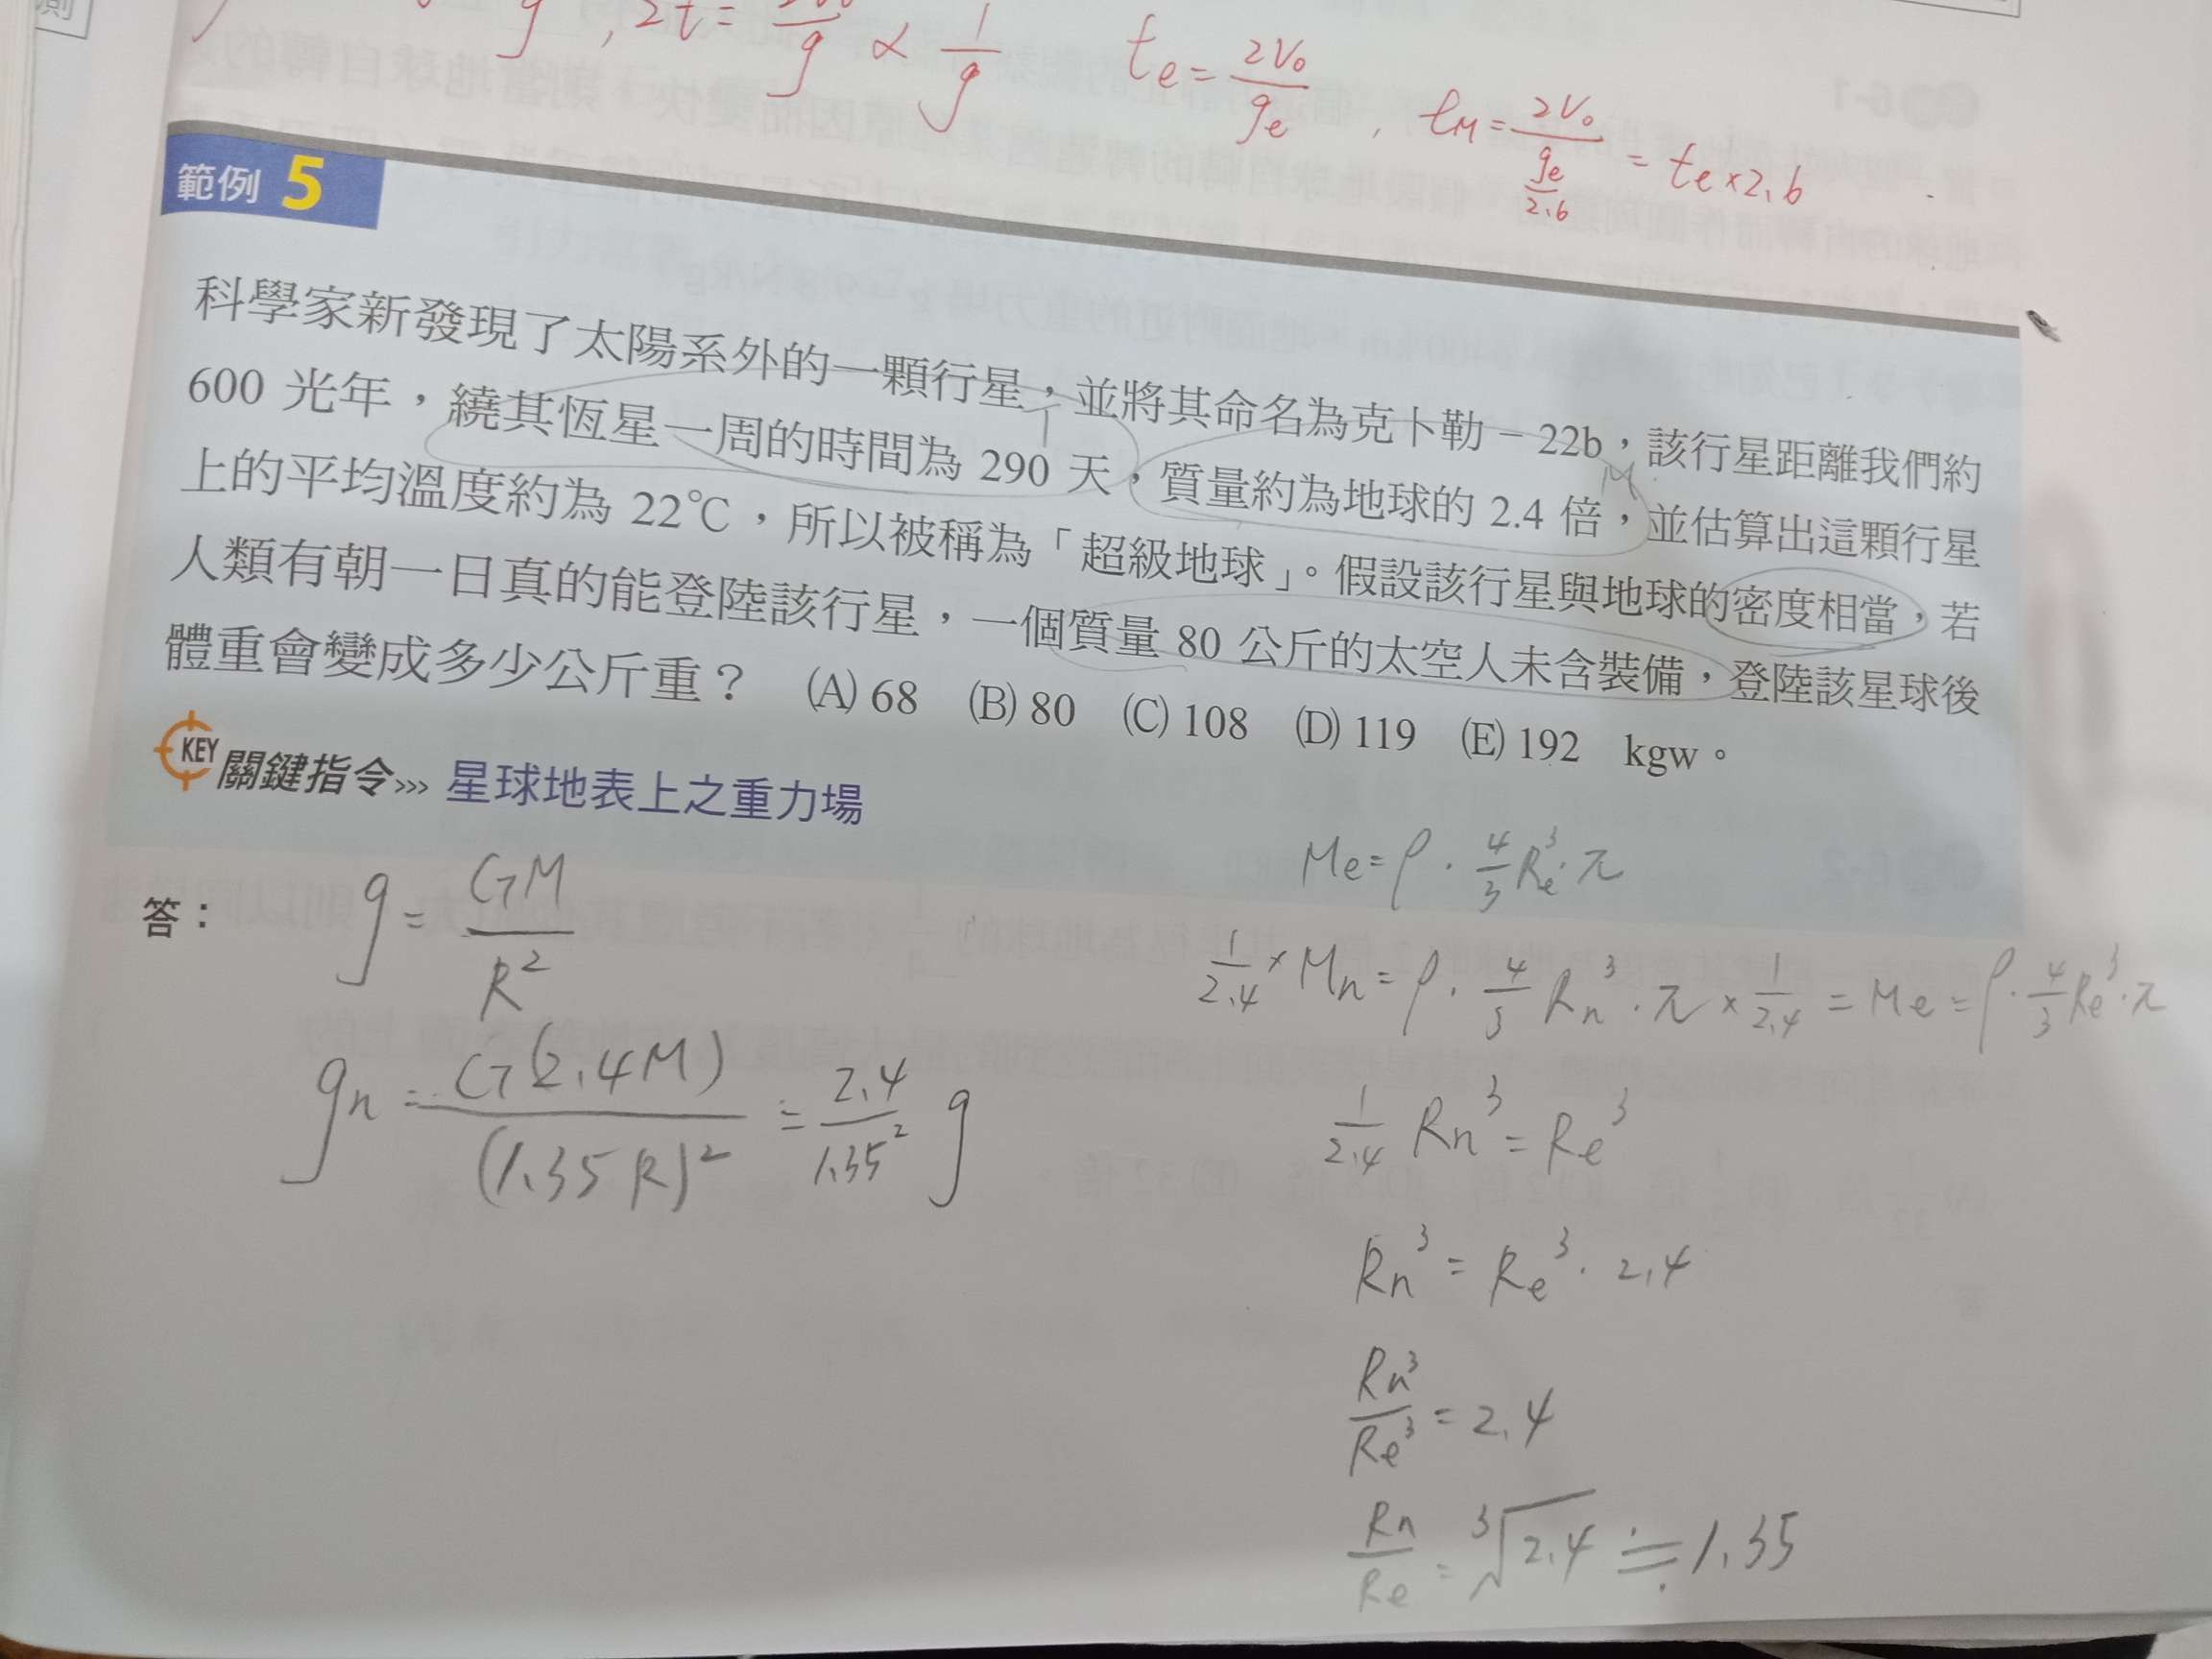 g , 2t = 2V₀/g ∝ 1/g
te = 2V₀/ge , tM = 2V₀/(ge/2.6) = te × 2.6
範例 5
科學家新發現了太陽系外的一顆行星，並將其命名為克卜勒－22b，該行星距離我們約
600 光年，繞其恆星一周的時間為 290 天，質量約為地球的 2.4 倍，並估算出這顆行星
上的平均溫度約為 22℃，所以被稱為「超級地球」。假設該行星與地球的密度相當，若
人類有朝一日真的能登陸該行星，一個質量 80 公斤的太空人未含裝備，登陸該星球後
體重會變成多少公斤重？ (A) 68 (B) 80 (C) 108 (D) 119 (E) 192 kgw。
T
M
KEY 關鍵指令>>> 星球地表上之重力場
答：
g = GM/R²
gn = G(2.4M)/(1.35R)² = 2.4/1.35² g
Me = ρ · 4/3 Re³ · π
1/2.4 × Mn = ρ · 4/3 Rn³ · π × 1/2.4 = Me = ρ · 4/3 Re³ · π
1/2.4 Rn³ = Re³
Rn³ = Re³ · 2.4
Rn³/Re³ = 2.4
Rn/Re = ³√2.4 ≒ 1.35